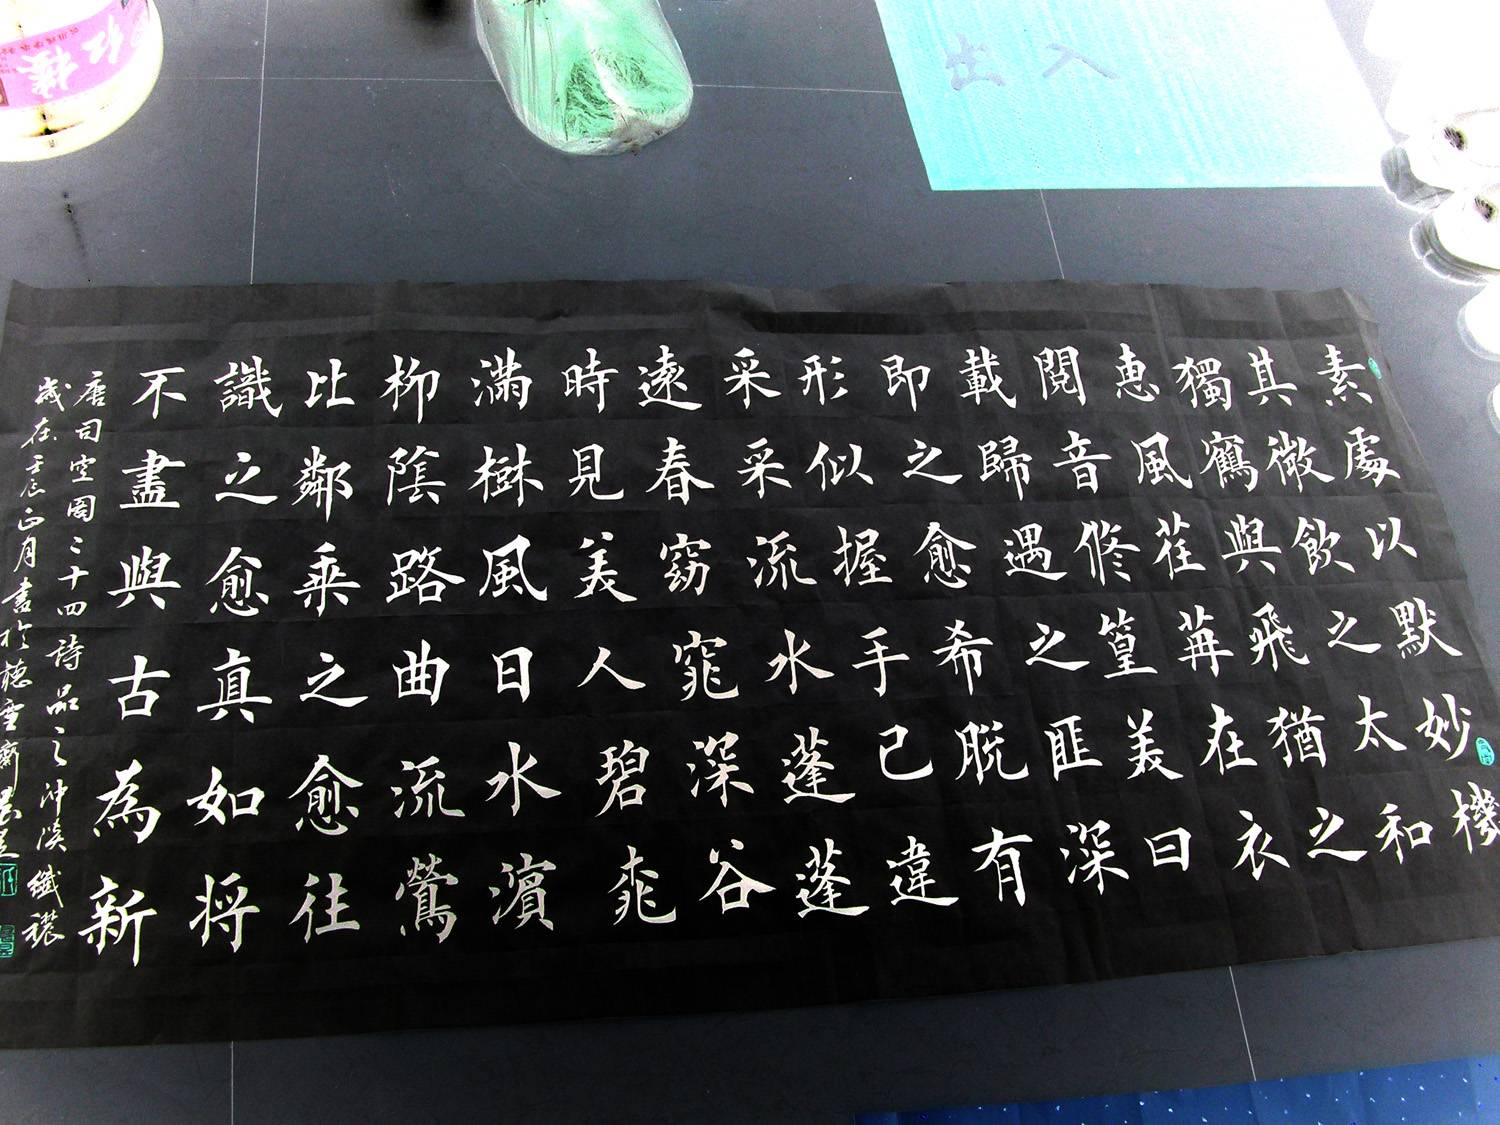 出入
素處以默妙機
其微飲之太和
獨鶴與飛猶之
惠風荏苒在衣
閱音修篁美曰
載歸遇之匪深
即之愈希脫有
形似握手已違
采采流水蓬蓬
遠春窈窕深谷
時見美人碧桃
滿樹風日水濱
柳陰路曲流鶯
比鄰乘之愈往
識之愈真如將
不盡與古為新
唐司空圖二十四詩品之沖淡纖穠
歲在壬辰正月書於聽雪齋